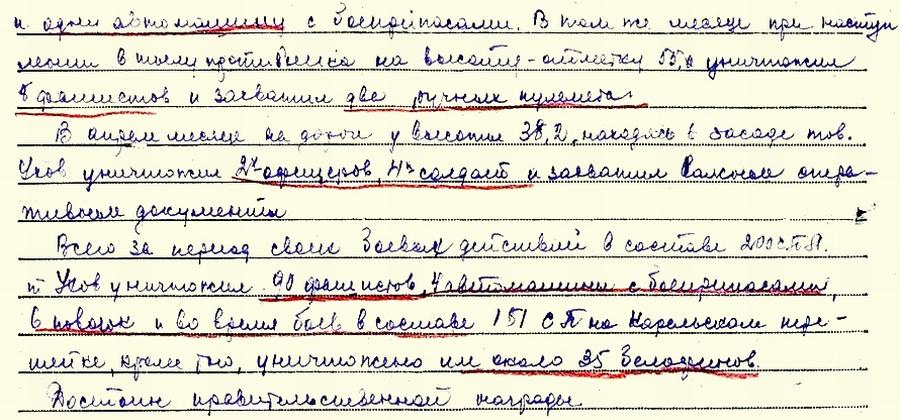 и одну автомашину с боеприпасами. В том же месяце при наступ
лении в тылу противника на высоте-отметку 55,х уничтожил
8 фашистов и захватил две ручных пулемета.
В апреле месяце на дороге у высоты 38,2, находясь в засаде тов.
Уков уничтожил 2х офицеров, 4х солдат и захватил важные опера-
тивные документы
Всего за период своих боевых действий в составе 200 СП
т Уков уничтожил 90 фашистов, 4 автомашины с боеприпасами,
6 повозок и во время боев в составе 151 СП на Карельском пере-
шейке, кроме того, уничтожено им около 35 белофинов.
Достоин правительственной награды